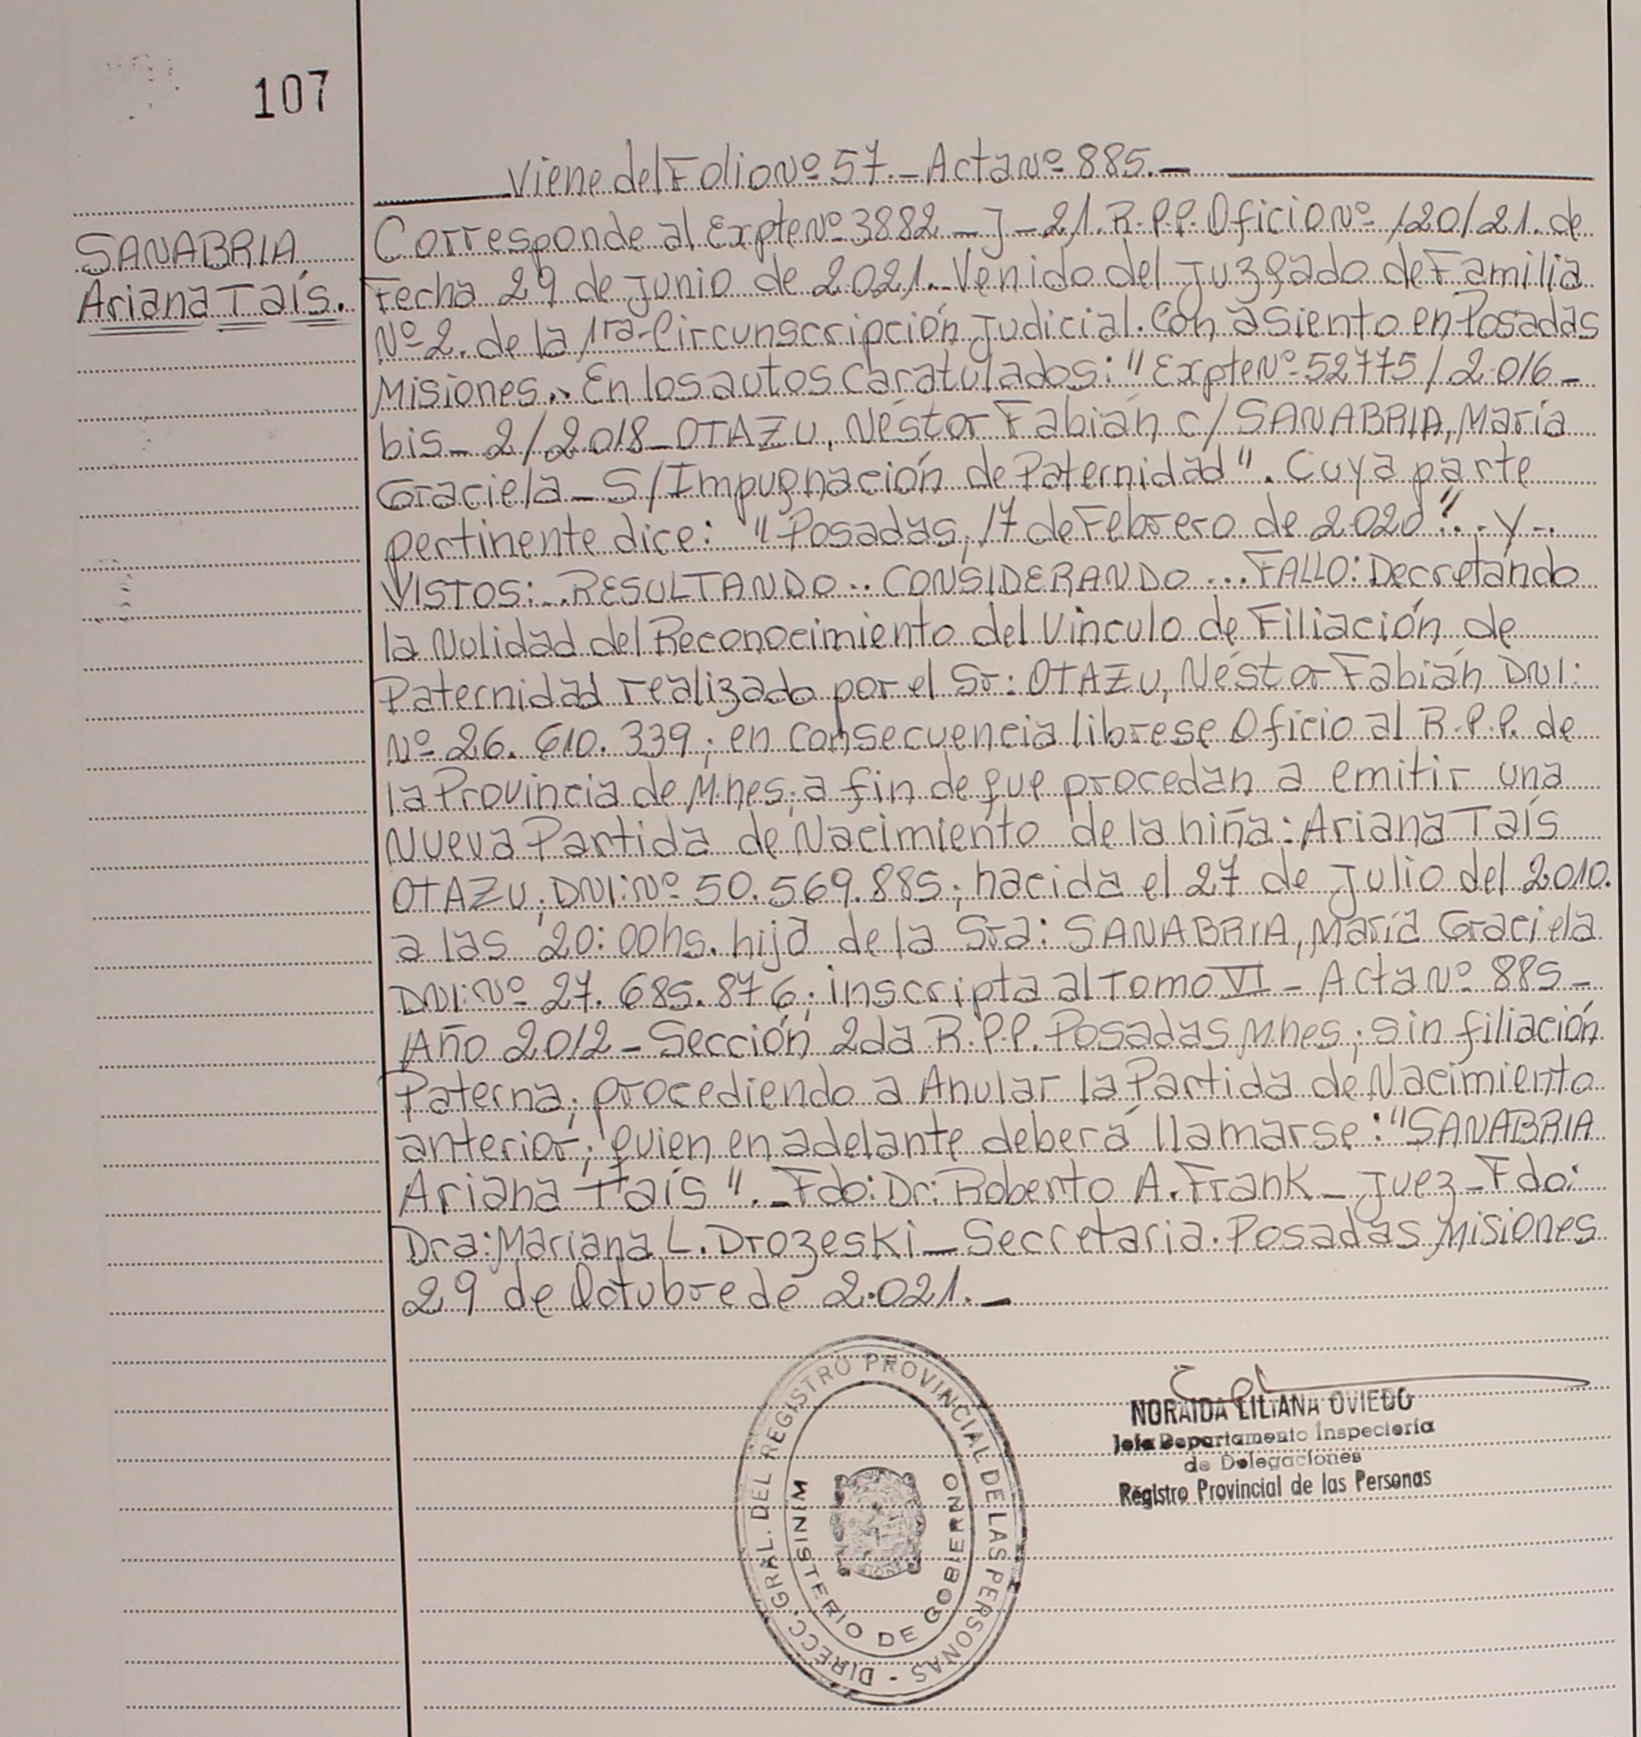 107
Viene del Folio Nº 57.- Acta Nº 885.-
SANABRIA
Ariana Taís.
Corresponde al Expte Nº 3882 - J - 21. R.P.P. Oficio Nº 120/21. de
Fecha 29 de Junio de 2.021.- Venido del Juzgado de Familia
Nº 2. de la 1ra- Circunscripción Judicial. Con asiento en Posadas
Misiones.- En los autos caratulados: "Expte Nº 52775/2.016-
bis- 2/2.018- OTAZU, Néstor Fabián c/ SANABRIA, María
Graciela - S/Impugnación de Paternidad". Cuya parte
pertinente dice: "Posadas, 17 de Febrero de 2.020"... Y..
VISTOS:...RESULTANDO...CONSIDERANDO...FALLO: Decretando
la Nulidad del Reconocimiento del Vinculo de Filiación de
Paternidad realizado por el Sr: OTAZU, Néstor Fabián DNI:
Nº 26.610.339; en consecuencia librese Oficio al R.P.P. de
la Provincia de Mnes; a fin de que procedan a emitir una
Nueva Partida de Nacimiento de la niña: Ariana Taís
OTAZU; DNI: Nº 50.569.885; nacida el 27 de Julio del 2.010.
a las 20:00hs. hija de la Sra: SANABRIA, María Graciela
DNI: Nº 27.685.876; inscripta al Tomo VI - Acta Nº 885-
Año 2012- Sección 2da R.P.P. Posadas Mnes; sin filiación
Paterna; procediendo a Anular la Partida de Nacimiento
anterior; quien en adelante deberá llamarse: "SANABRIA
Ariana Taís".- Fdo: Dr: Roberto A. Frank - Juez - Fdo:
Dra: Mariana L. Drozeski - Secretaria. Posadas Misiones
29 de Octubre de 2.021.-
DIRECC. GRAL. DEL REGISTRO PROVINCIAL DE LAS PERSONAS -
MINISTERIO DE GOBIERNO
NORAIDA LILIANA OVIEDO
Jefa Departamento Inspectoría
de Delegaciones
Registro Provincial de las Personas